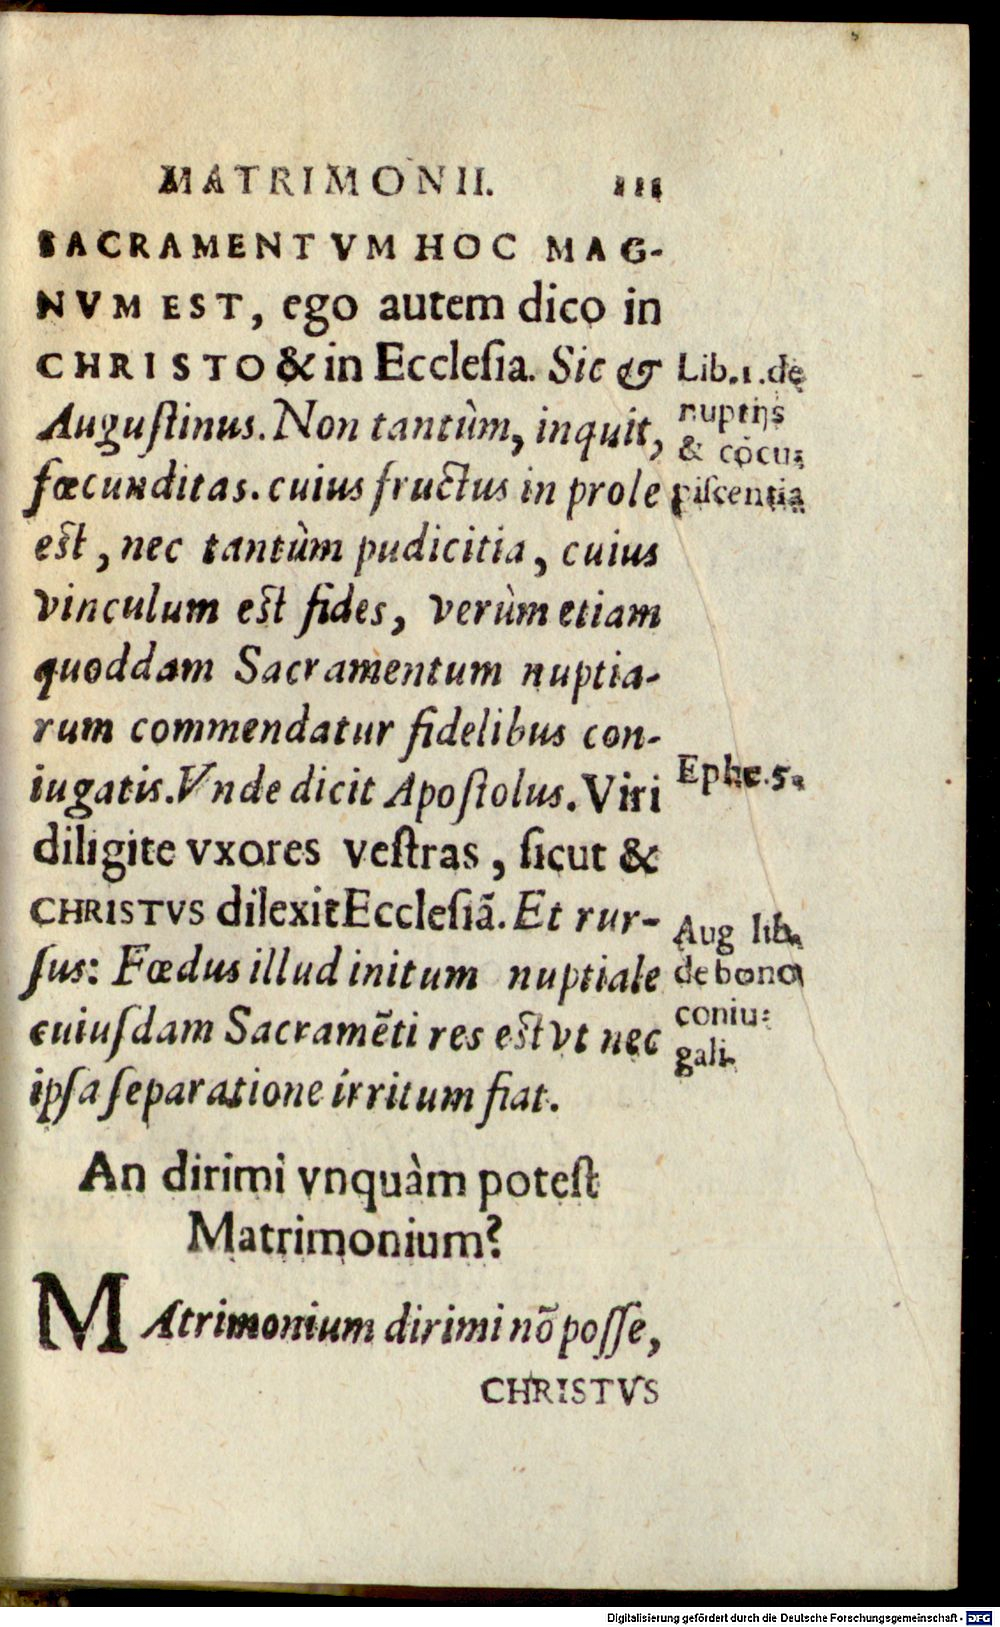 MATRIMONII. 111
SACRAMENTVM HOC MAG-
NVM EST, ego autem dico in
CHRISTO & in Ecclesia. Sic &
Augustinus. Non tantùm, inquit,
fœcunditas. cuius fructus in prole
est, nec tantùm pudicitia, cuius
vinculum est fides, verùm etiam
quoddam Sacramentum nuptia-
rum commendatur fidelibus con-
iugatis. Vnde dicit Apostolus. Viri
diligite vxores vestras, sicut &
CHRISTVS dilexit Ecclesiā. Et rur-
sus: Fœdus illud initum nuptiale
cuiusdam Sacramēti res est vt nec
ipsa separatione irritum fiat.
Lib. 1. de
nuptijs
& cōcu-
piscentia
Ephe. 5.
Aug lib.
de bono
coniu-
gali.
An dirimi vnquàm potest
Matrimonium?
MAtrimonium dirimi nō posse,
CHRISTVS
Digitalisierung gefördert durch die Deutsche Forschungsgemeinschaft - DFG